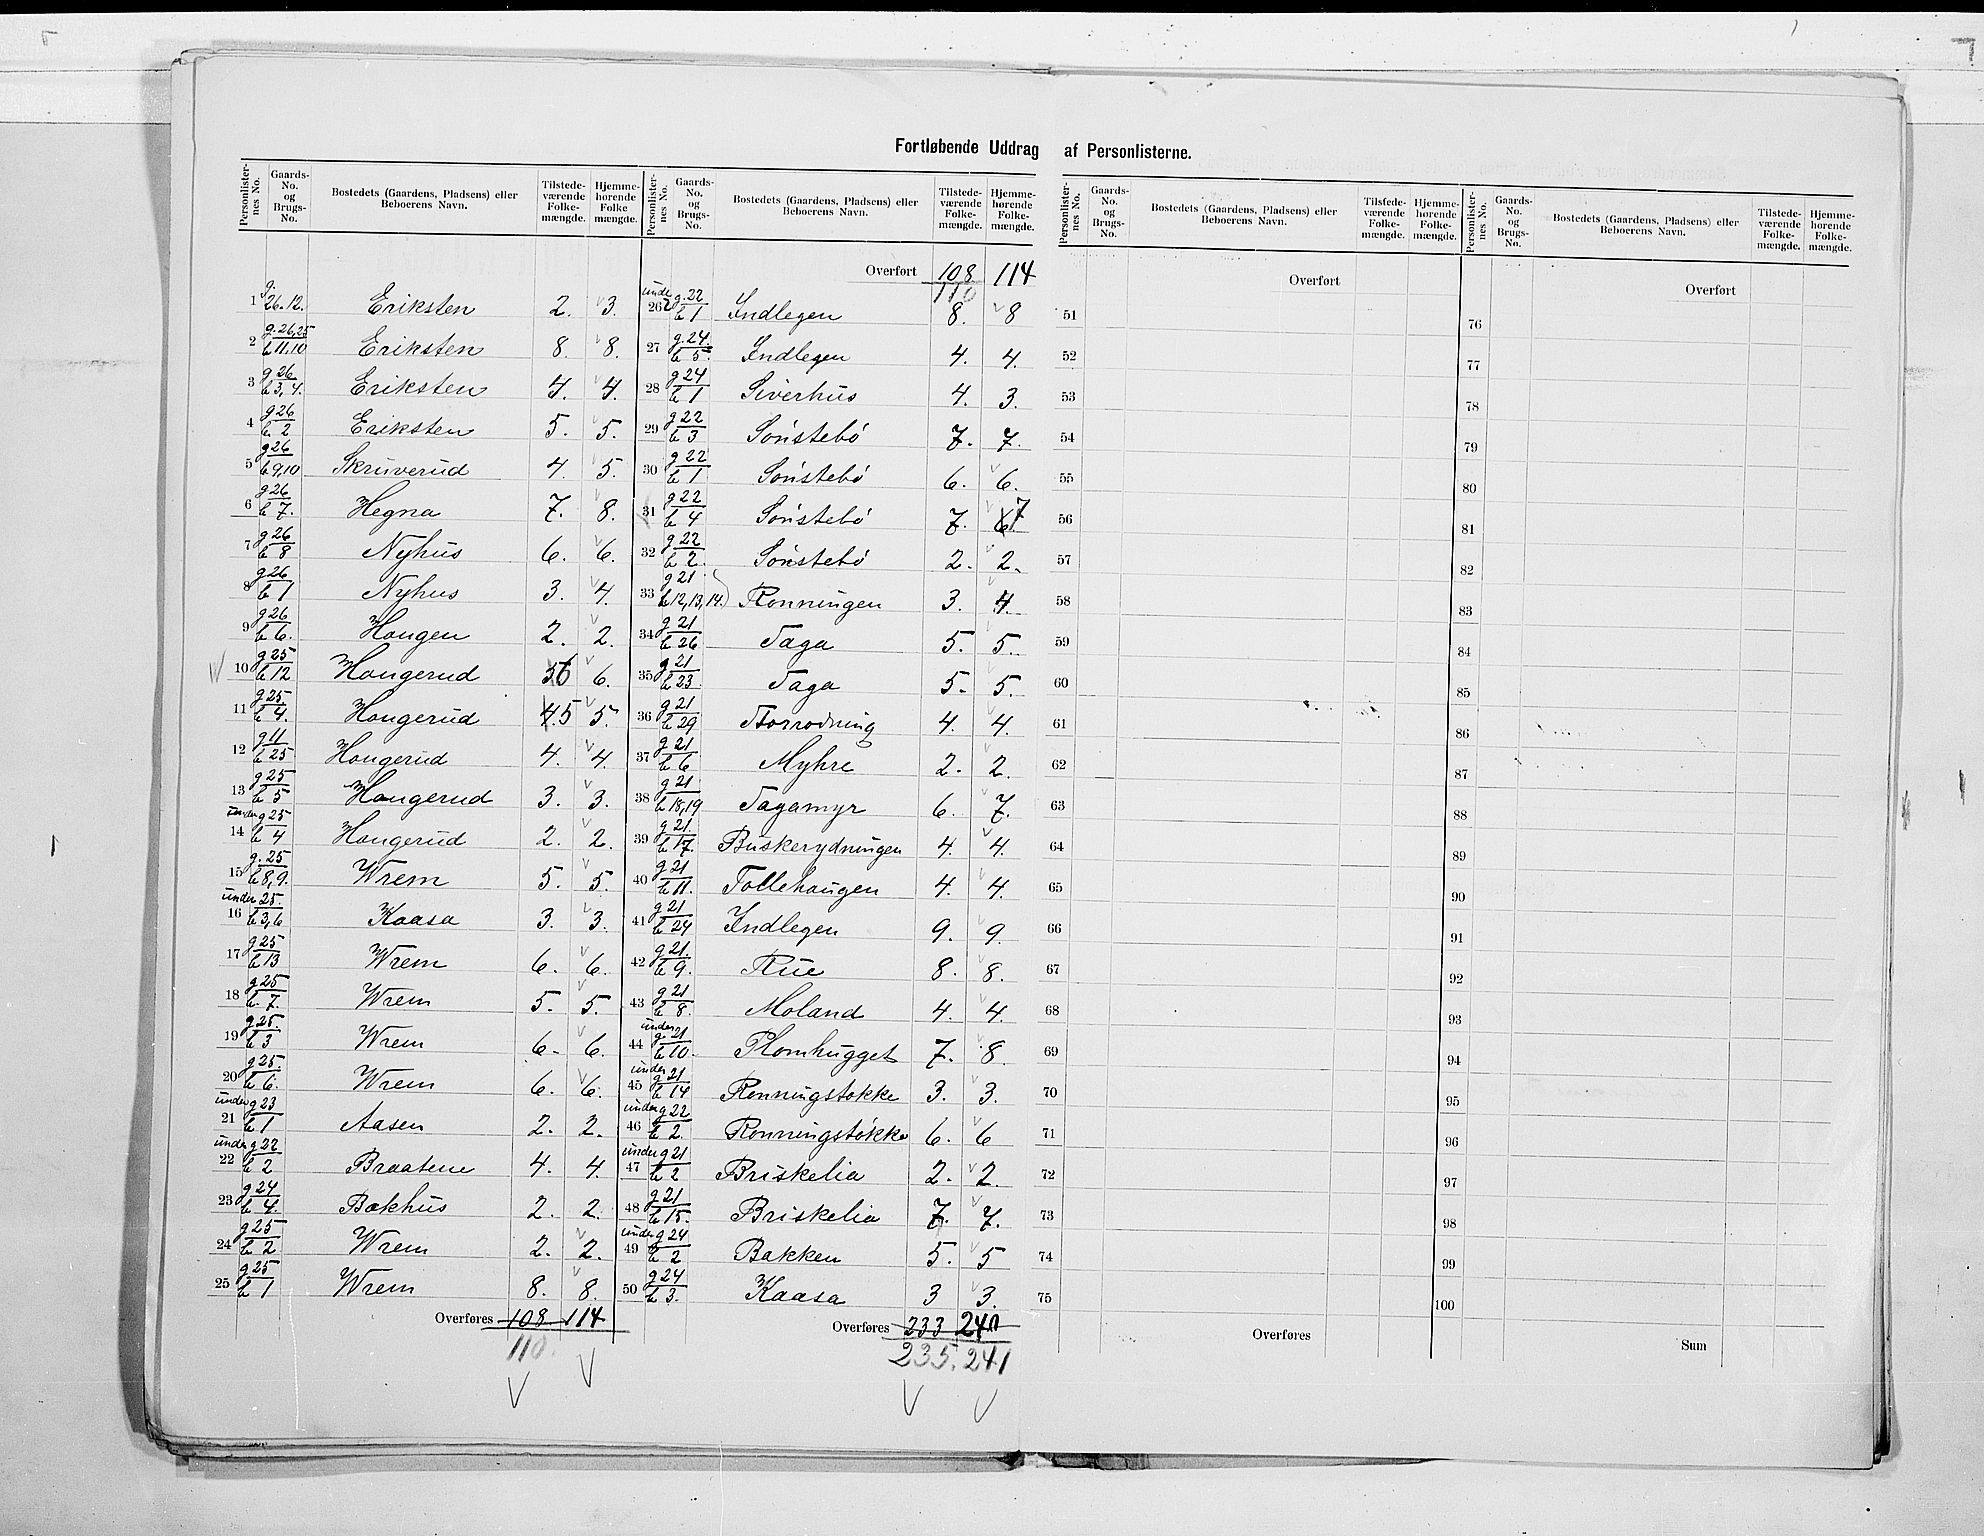 Fortløbende Uddrag af Personlisterne.
Personlisternes No. | Gaards-No. og Brugs-No. | Bostedets (Gaardens, Pladsens) eller Beboerens Navn. | Tilstedeværende Folkemængde. | Hjemmehørende Folkemængde.
1 g. 26.12. Eriksten 2. 3.
2 g.26,25 b11,10 Eriksten 8. 8.
3 g26 b3,4. Eriksten 4. 4.
4 g26 b. 2 Eriksten 5. 5.
5 g26 b9,10 Skruverud 4. 5.
6 g26 b7. Hegna 7. 8.
7 g26 b8 Nyhus 6. 6.
8 g26 b1 Nyhus 3. 4.
9 g26 b6. Hougen 2. 2.
10 g25 b12 Hougerud 5 6 6.
11 g25. b4. Hougerud 4. 5 5.
12 g11 b25 Hougerud 4. 4.
13 g25 b5 Hougerud 3. 3.
14 under g25 b4 Hougerud 2. 2.
15 g.25 b8,9. Wrem 5. 5.
16 under 25. b3,6 Kaasa 3. 3.
17 g25 b13 Wrem 6. 6.
18 g25 b.7. Wrem 5. 5.
19 g25. b3 Wrem 6. 6.
20 g25. b6. Wrem 6. 6.
21 under g23 b1 Aasen 2. 2.
22 under g22 b2 Braatene 4. 4.
23 g24 b4. Bakhus 2. 2.
24 g25 b2 Wrem 2. 2.
25 g25 b1 Wrem 8. 8.
Overføres 108 114
110.
Overført 108 114
110
26 under g.22 b1 Indlegen 8. 8
27 g.24. b5. Indlegen 4. 4.
28 g24 b1 Siverhus 4. 3.
29 g22 b3 Sønstebø 7. 7.
30 g22 b1 Sønstebø 6. 6.
31 g22 b4 Sønstebø 7. 6 7
32 g22 b2. Sønstebø 2. 2.
33 g21 b12,13,14. Rønningen 3. 4.
34 g21 b26 Taga 5. 5.
35 g21 b23. Taga 5. 5.
36 g21 b29 Storrodning 4. 4.
37 g21 b6 Myhre 2. 2.
38 g21 b18,19 Tagamyr 6. 7.
39 g21. b17. Buskerydningen 4. 4.
40 g21 b11. Tollehaugen 4. 4.
41 g21 b24 Indlegen 9. 9.
42 g21. b9. Rue 8. 8.
43 g21 b8. Moland 4. 4.
44 under g.21 b10. Plomhugget 7. 8.
45 under g21 b14 Rønningstokke 3. 3.
46 under g22 b2. Rønningstøkke 6. 6
47 under g21 b2 Briskelia 2. 2.
48 g21 b15. Briskelia 7. 7.
49 under g24 b2 Bakken 5. 5
50 g24 b3. Kaasa 3 3.
Overføres 233 240
235. 241
Personlisternes No. | Gaards-No. og Brugs-No. | Bostedets (Gaardens, Pladsens) eller Beboerens Navn. | Tilstedeværende Folkemængde. | Hjemmehørende Folkemængde.
Overført
51
52
53
54
55
56
57
58
59
60
61
62
63
64
65
66
67
68
69
70
71
72
73
74
75
Overføres
Overført
76
77
78
79
80
81
82
83
84
85
86
87
88
89
90
91
92
93
94
95
96
97
98
99
100
Sum